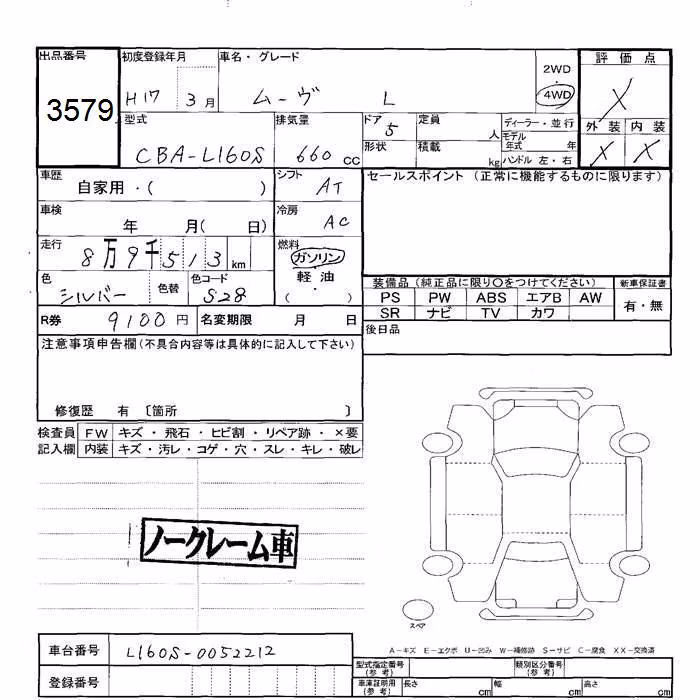 出品番号 初度登録年月 車名・グレード 2WD 評価点
3579 H17 3月 ムーヴ L 4WD X
型式 排気量 ドア 定員 ディーラー・並行 外装 内装
CBA-L160S 660 cc 5 人 モデル年式 年 X X
形状 積載 kg ハンドル 左・右
車歴 自家用・( ) シフト AT セールスポイント(正常に機能するものに限ります)
車検 年 月( 日) 冷房 AC
走行 8万9千513 km 燃料 ガソリン
軽油
・( )
色 シルバー 色替 色コード S28
装備品(純正品に限り○をつけてください) 新車保証書
PS PW ABS エアB AW 有・無
SR ナビ TV カワ
R券 9100円 名変期限 月 日 後日品
注意事項申告欄(不具合内容等は具体的に記入して下さい)
修復歴 有 〔箇所 〕
検査員 FW キズ・飛石・ヒビ割・リペア跡・×要
記入欄 内装 キズ・汚レ・コゲ・穴・スレ・キレ・破レ
ノークレーム車
スペア
A-キズ E-エクボ U-凹み W-補修跡 S-サビ C-腐食 XX-交換済
車台番号 L160S-0052212
型式指定番号(参考) 類別区分番号(参考)
登録番号
車庫証明用(参考) 長さ cm 幅 cm 高さ cm